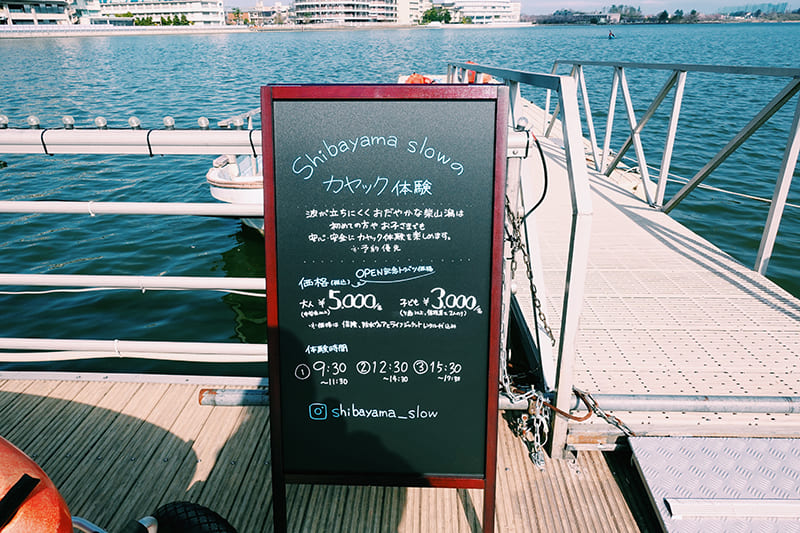 Shibayama slow
カヤック体験
波が立ちにくくおだやかな柴山潟は
初めての方やお子さまでも
安心・安全にカヤック体験を楽しめます。
※予約優先
OPEN記念トクベツ価格
価格(税込)
大人 ¥5,000 子ども ¥3,000
※価格は 保険、ライフジャケット レンタル代込
体験時間
① 9:30 ② 12:30 ③ 15:30
〜11:30 〜14:30 〜17:30
shibayama_slow